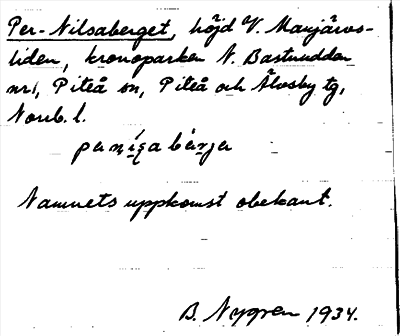 Per-Nilsaberget, höjd V. Manjärvs-
liden, kronoparken N. Bastuudden
nr 1, Piteå sn, Piteå och Älvsby tg,
Norrb. l.
Namnets uppkomst obekant.
B. Nygren 1934.